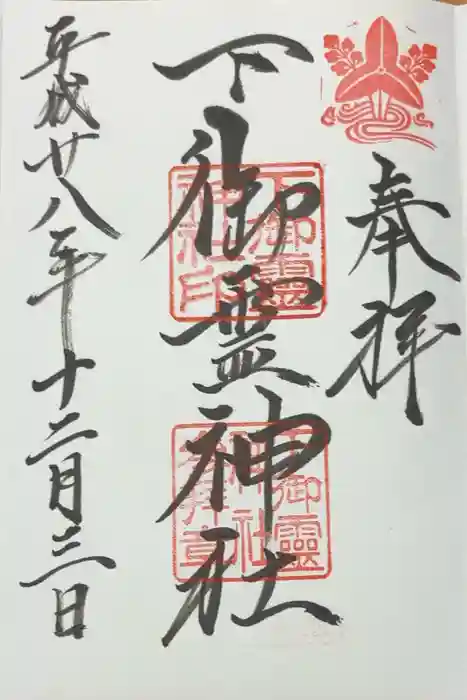 奉拝
下御霊神社
平成廿八年十二月三日
下御靈神社印
下御靈神社参拝章